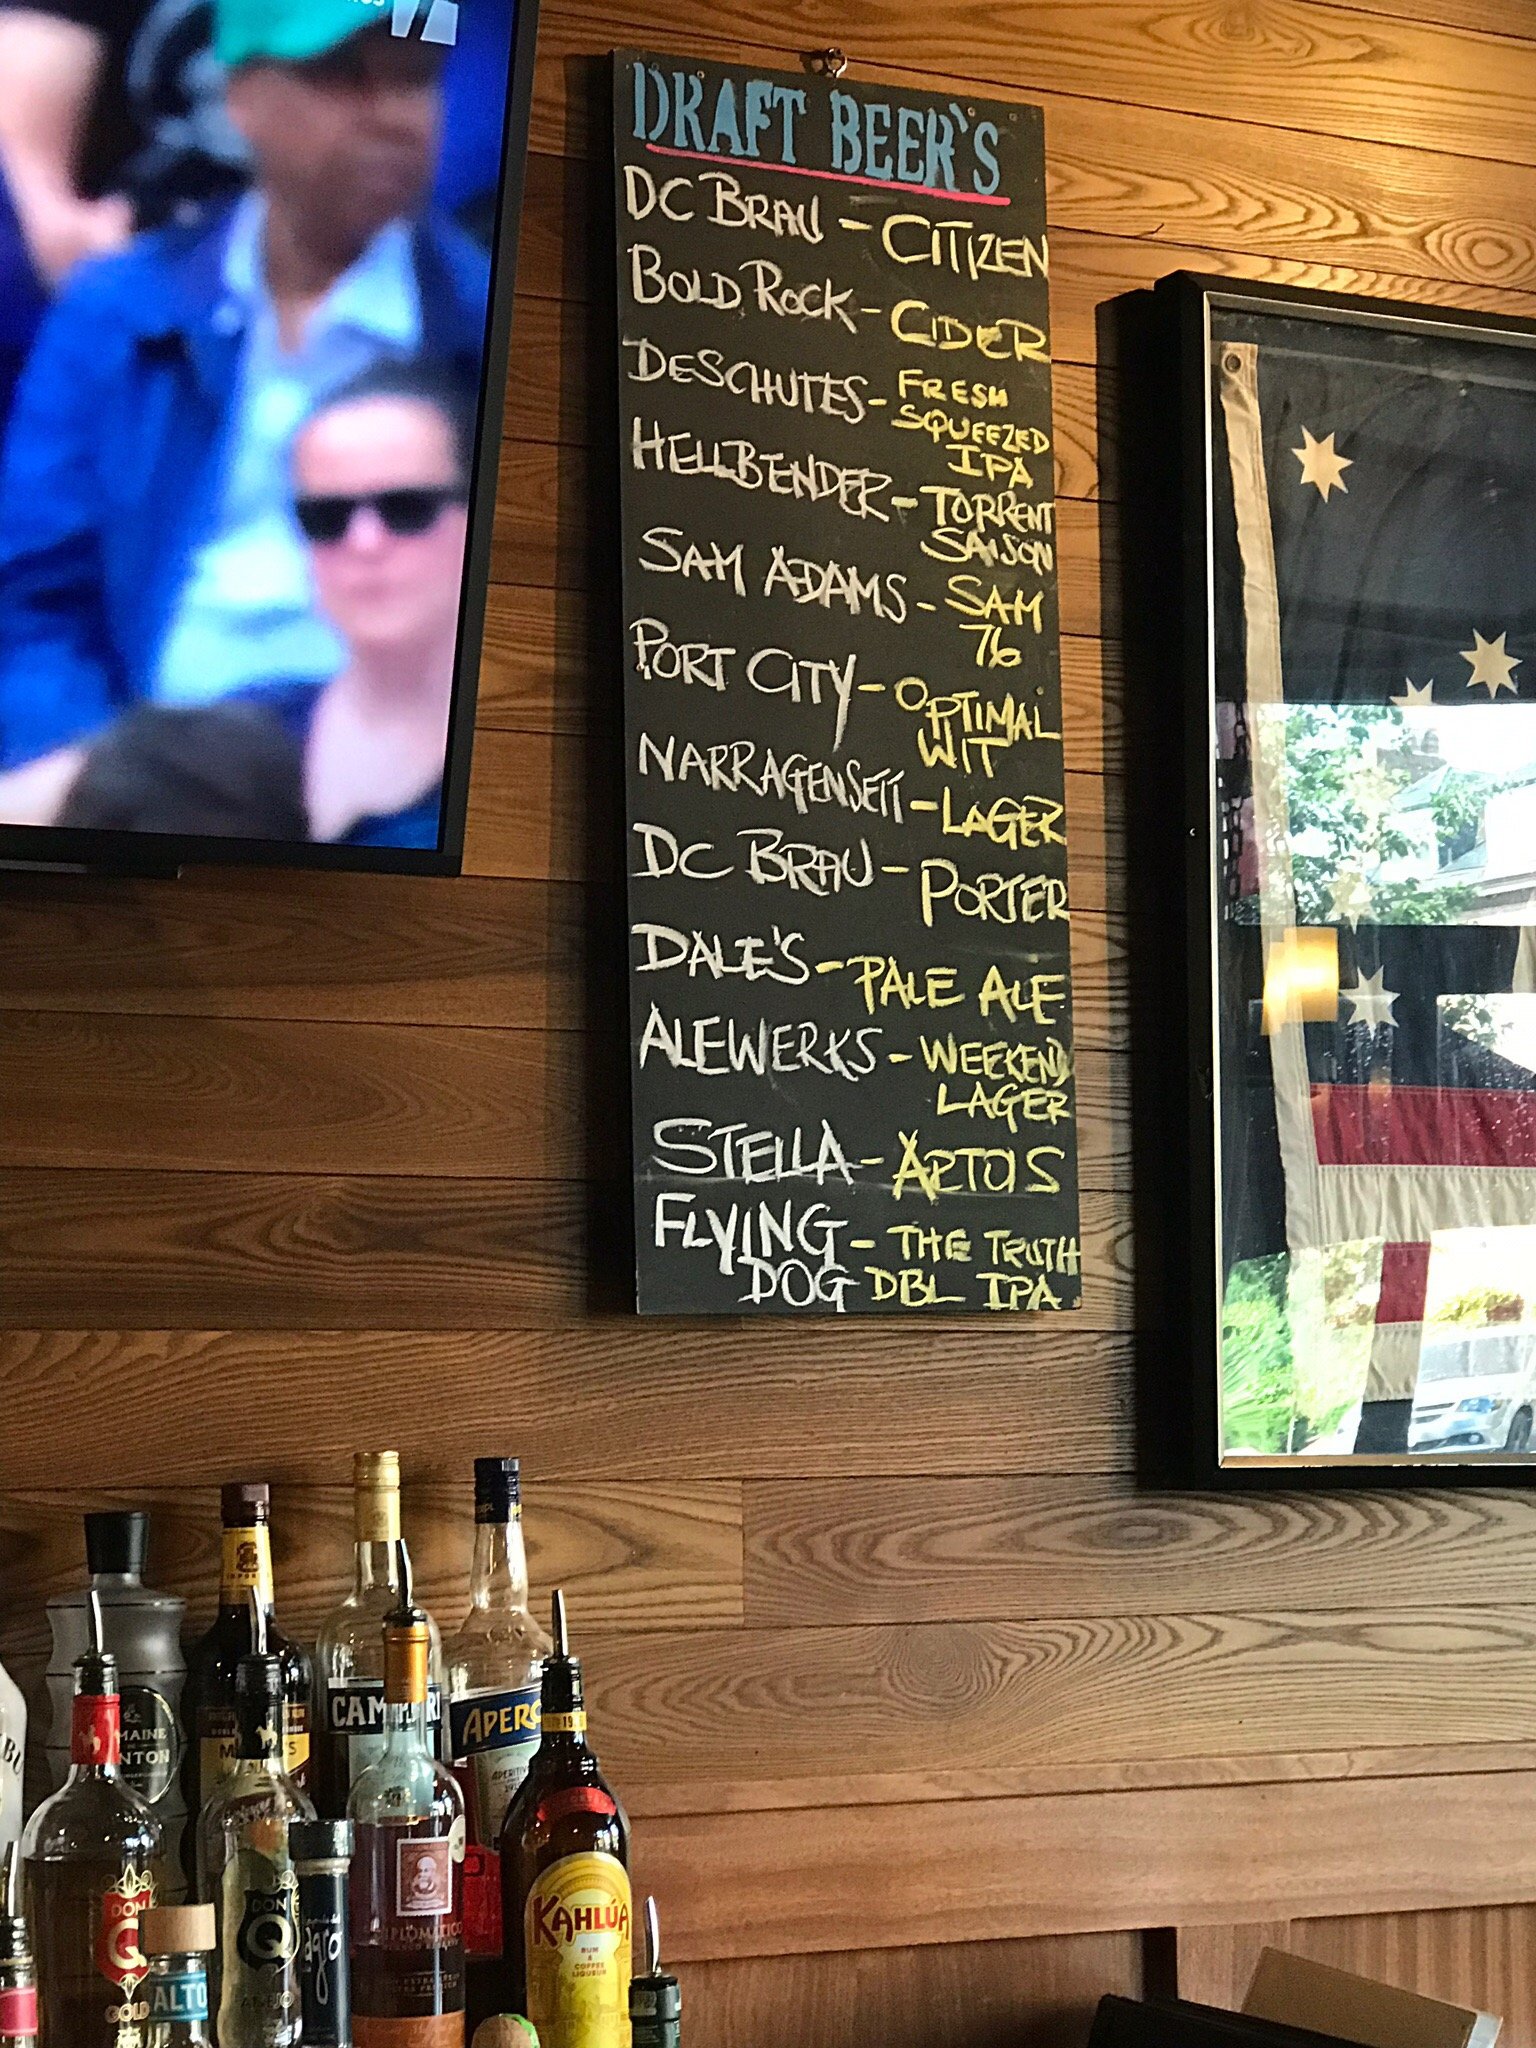 DRAFT BEER'S
DC BRAU - CITIZEN
BOLD ROCK - CIDER
DESCHUTES - FRESH
SQUEEZED
IPA
HELLBENDER - TORRENT
SAISON
SAM ADAMS - SAM
76
PORT CITY - OPTIMAL
WIT
NARRAGENSETT - LAGER
DC BRAU - PORTER
DALE'S - PALE ALE
ALEWERKS - WEEKEND
LAGER
STELLA - ARTOIS
FLYING - THE TRUTH
DOG DBL IPA
CAMPARI
APERO
MAINE
NTON
DON
Q
GOLD
DON
Q
AÑEJO
ALTO
DIPLOMÁTICO
KAHLÚA
RUM
&
COFFEE
LIQUEUR